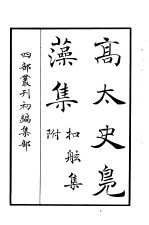 高太史鳧
藻集
附
扣舷集
四部叢刊初編集部